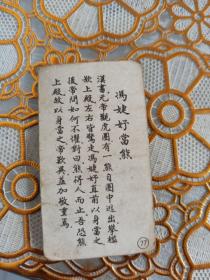 馮婕妤當熊
漢書元帝觀虎圈有一熊自圈中逃出攀檻
欲上殿左右皆驚走馮婕妤直前以身當之
後帝問如何不懼對曰熊得人而止吾恐熊
上殿故以身當之帝歎異益加敬重焉
77